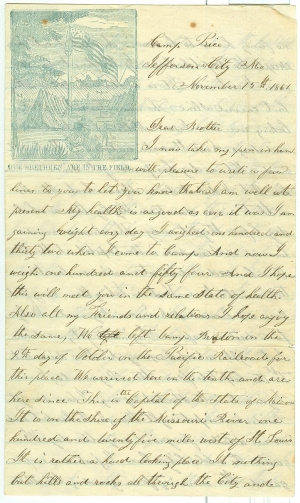 Camp Price
Jefferson City Mo
November 15th 1861
Dear Brother
I now take my pen in hand
OUR BRETHREN ARE IN THE FIELD
with pleasure to write a few
lines to you to let you know that I am well at
present My health is as good as ever it was I am
gaining weight evry day I weighed one hundred and
thirty two when I came to Camp And now I
weigh one hundred and fifty four And I hope
this will meet you in the same State of health
Also all my Friends and relations I hope enjoy
the same, We left left Camp Benton on the
8th day of October in the Pacific Railroade for
this place We arrived here on the tenth and are
here since This is the Capital of the State of
It is on the shore of the Missouria River one
hundred and twenty five miles west of St. Louis
It is rather a hard looking place It nothing
but hills and rocks all through the City and